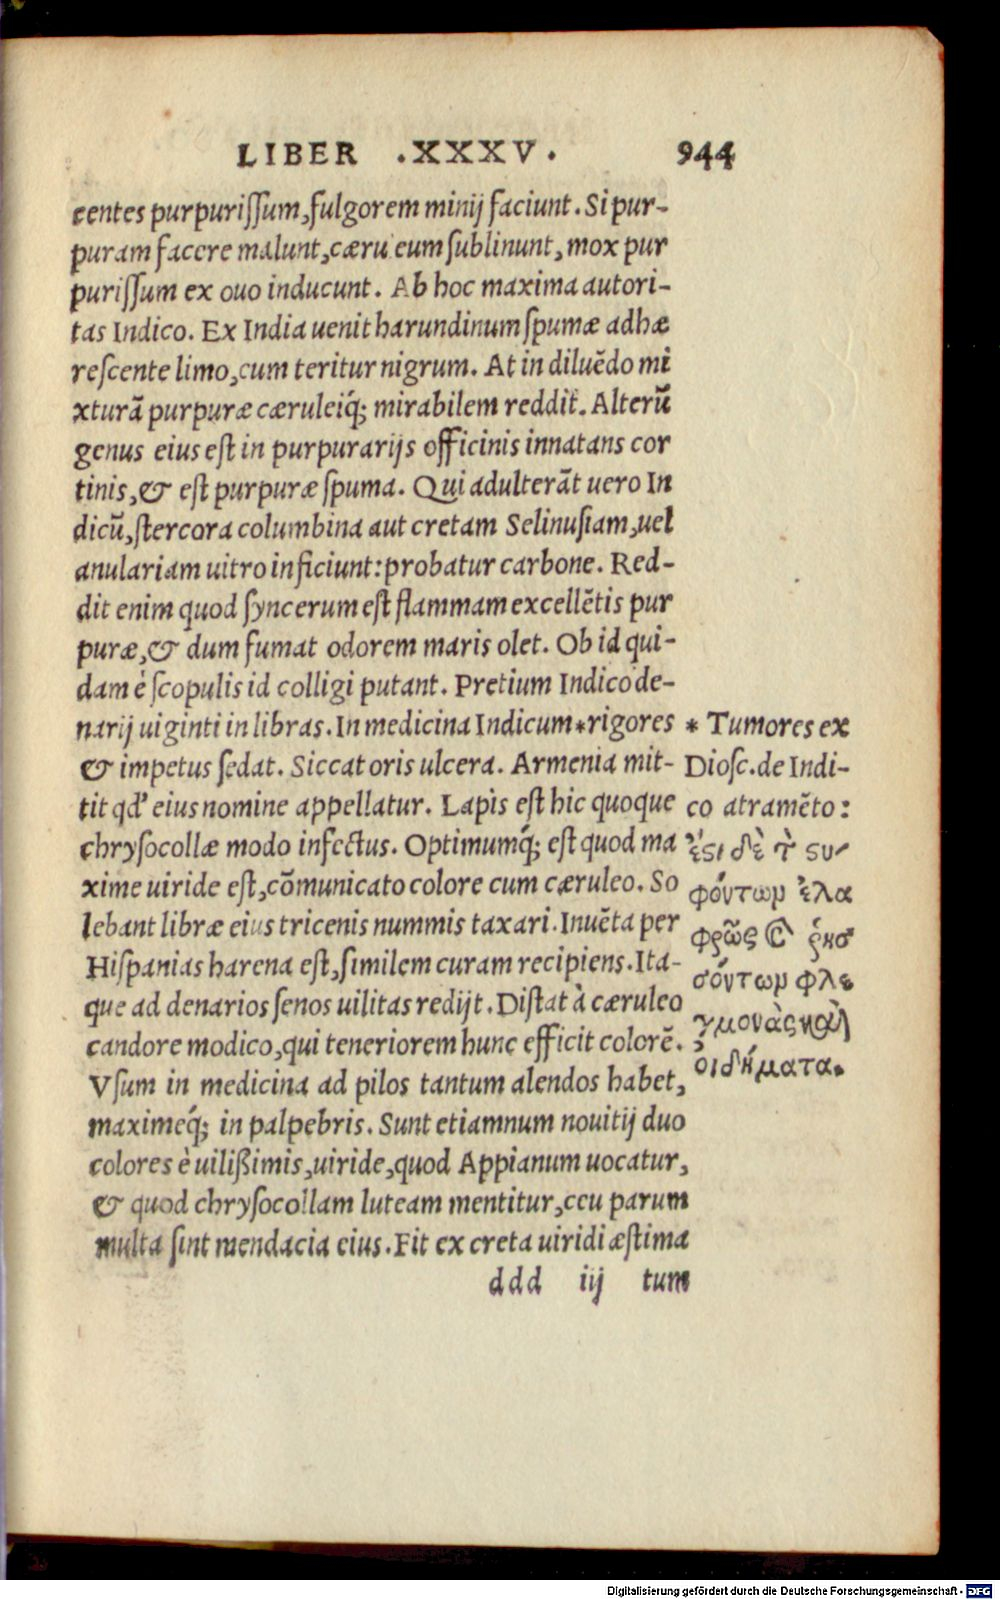 LIBER .XXXV. 944
centes purpurissum, fulgorem minij faciunt. Si pur-
puram facere malunt, cæru eum sublinunt, mox pur
purissum ex ouo inducunt. Ab hoc maxima autori-
tas Indico. Ex India uenit harundinum spumæ adhæ
rescente limo, cum teritur nigrum. At in diluēdo mi
xturā purpuræ cæruleiq́; mirabilem reddit. Alterū
genus eius est in purpurarijs officinis innatans cor
tinis, & est purpuræ spuma. Qui adulterāt uero In
dicū, stercora columbina aut cretam Selinusiam, uel
anulariam uitro inficiunt: probatur carbone. Red-
dit enim quod syncerum est flammam excellētis pur
puræ, & dum fumat odorem maris olet. Ob id qui-
dam è scopulis id colligi putant. Pretium Indico de-
narij uiginti in libras. In medicina Indicum * rigores
& impetus sedat. Siccat oris ulcera. Armenia mit-
tit qd' eius nomine appellatur. Lapis est hic quoque
chrysocollæ modo infectus. Optimumq́; est quod ma
xime uiride est, cōmunicato colore cum cæruleo. So
lebant libræ eius tricenis nummis taxari. Inuēta per
Hispanias harena est, similem curam recipiens. Ita-
que ad denarios senos uilitas redijt. Distat à cæruleo
candore modico, qui teneriorem hunc efficit colorē.
Vsum in medicina ad pilos tantum alendos habet,
maximeq́; in palpebris. Sunt etiamnum nouitij duo
colores è uilißimis, uiride, quod Appianum uocatur,
& quod chrysocollam luteam mentitur, ceu parum
multa sint mendacia eius. Fit ex creta uiridi æstima
ddd iij tum
* Tumores ex
Diosc. de Indi-
co atramēto:
ἔστι δὲ τ̀ στυ-
φόντωμ ἐλα
φρῶς
σόντωμ φλε
γμονὰς καὶ
οιδήματα.
Digitalisierung gefördert durch die Deutsche Forschungsgemeinschaft - DFG